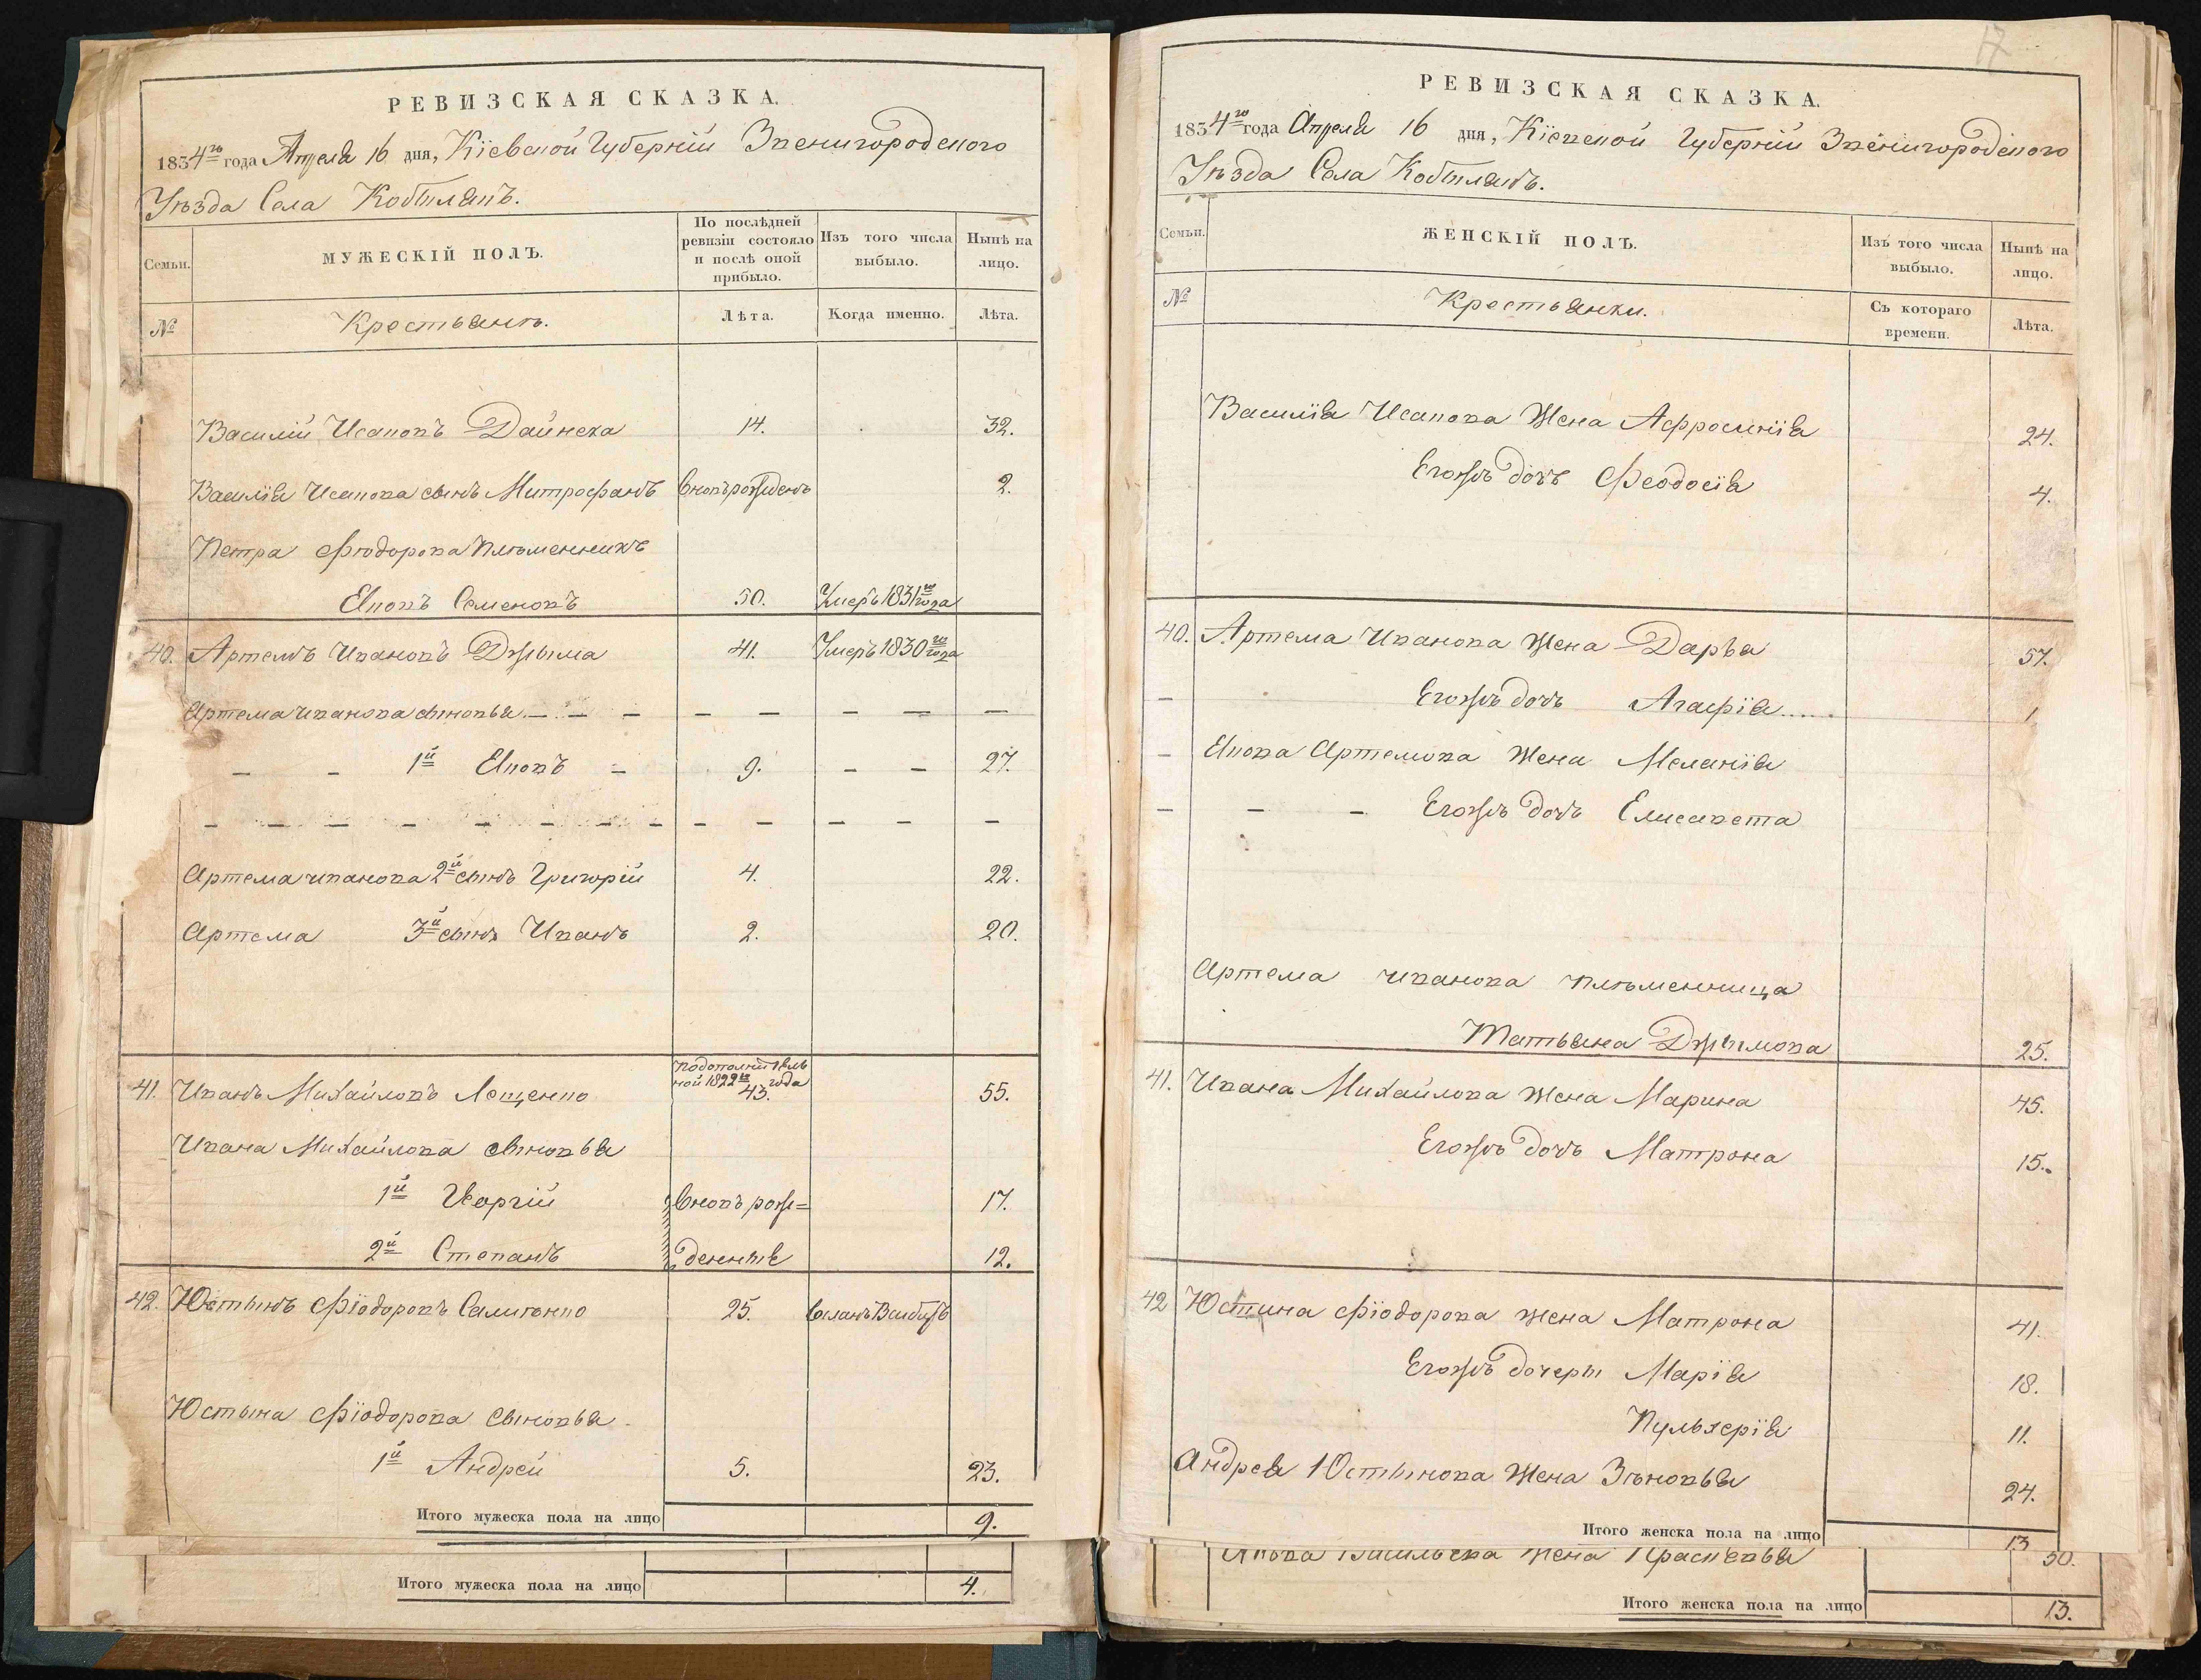 РЕВИЗСКАЯ СКАЗКА.
1834го года Апреля 16 дня, Кіевской Губерніи Звенигородского
Уѣзда Села Кобыляпъ.
Семьи.
МУЖЕСКІЙ ПОЛЪ.
По послѣдней ревизіи состояло и послѣ оной прибыло.
Изъ того числа выбыло.
Нынѣ на лицо.
№
Крестьянъ.
Лѣта.
Когда именно.
Лѣта.
Василій Исаковъ Дайнека 14. 32.
Василія Исакова сынъ Митрофанъ вновьрожденъ 2.
Петра Фіодорова Племенникъ
Яковъ Семеновъ 50. Умеръ 1831го года
40. Артемъ Ивановъ Джыма 41. Умеръ 1830го года
Артема иванова сыновья — — — — — — — —
— — 1й Яковъ — 9. — — 27.
— — — — — — — — — — — — —
Артема иванова 2й сынъ Григорій 4. 22.
Артема 3й сынъ Иванъ 2. 20.
41. Иванъ Михайловъ Лещенко подополнитель ной 1822го года 43. 55.
Ивана Михайлова сыновья
1й Георгій вновь рож= 17.
2й Степанъ денные 12.
42. Юстынъ Фіодоровъ 25. 
Юстына Фіодорова сыновья
1й Андрей 5. 23.
Итого мужеска пола на лицо 9.
Итого мужеска пола на лицо 4.
17
РЕВИЗСКАЯ СКАЗКА.
1834го года Апреля 16 дня, Кіевской Губерніи Звенигородского
Уѣзда Села Кобылякъ.
Семьи.
ЖЕНСКІЙ ПОЛЪ.
Изъ того числа выбыло.
Нынѣ на лицо.
№
Крестьянки.
Съ котораго времени.
Лѣта.
Василія Исакова Жена Афросинія 24.
Егожъ дочь Феодосія 4.
40. Артема Иванова Жена Дарья 57.
— Егожъ дочь Агафія..... 1
— Якова Артемова Жена Меланія
— — — Егожъ дочь Елисавета
Артема иванова племенница
Татьяна Джымова 25.
41. Ивана Михайлова Жена Марина 45.
Егожъ дочь Матрона 15.
42 Юстина Фіодорова Жена Матрона 41.
Егожъ дочеры Марія 18.
Пульхерія 11.
Андрея Юстынова Жена Зѣновья 24.
Итого женска пола на лицо 13
Якова Васильева Жена Прасковья 50.
Итого женска пола на лицо 13.